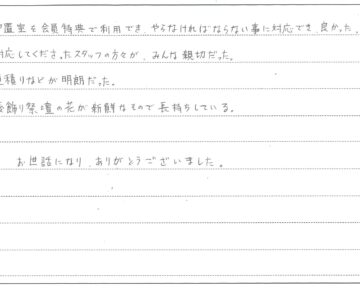 置室を会員特典で利用でき、やらなければならない事に対応でき、良かった。
対応してくださったスタッフの方々が、みんな親切だった。
見積りなどが明朗だった。
飾り祭壇の花が新鮮なもので長持ちしている。
お世話になり、ありがとうございました。